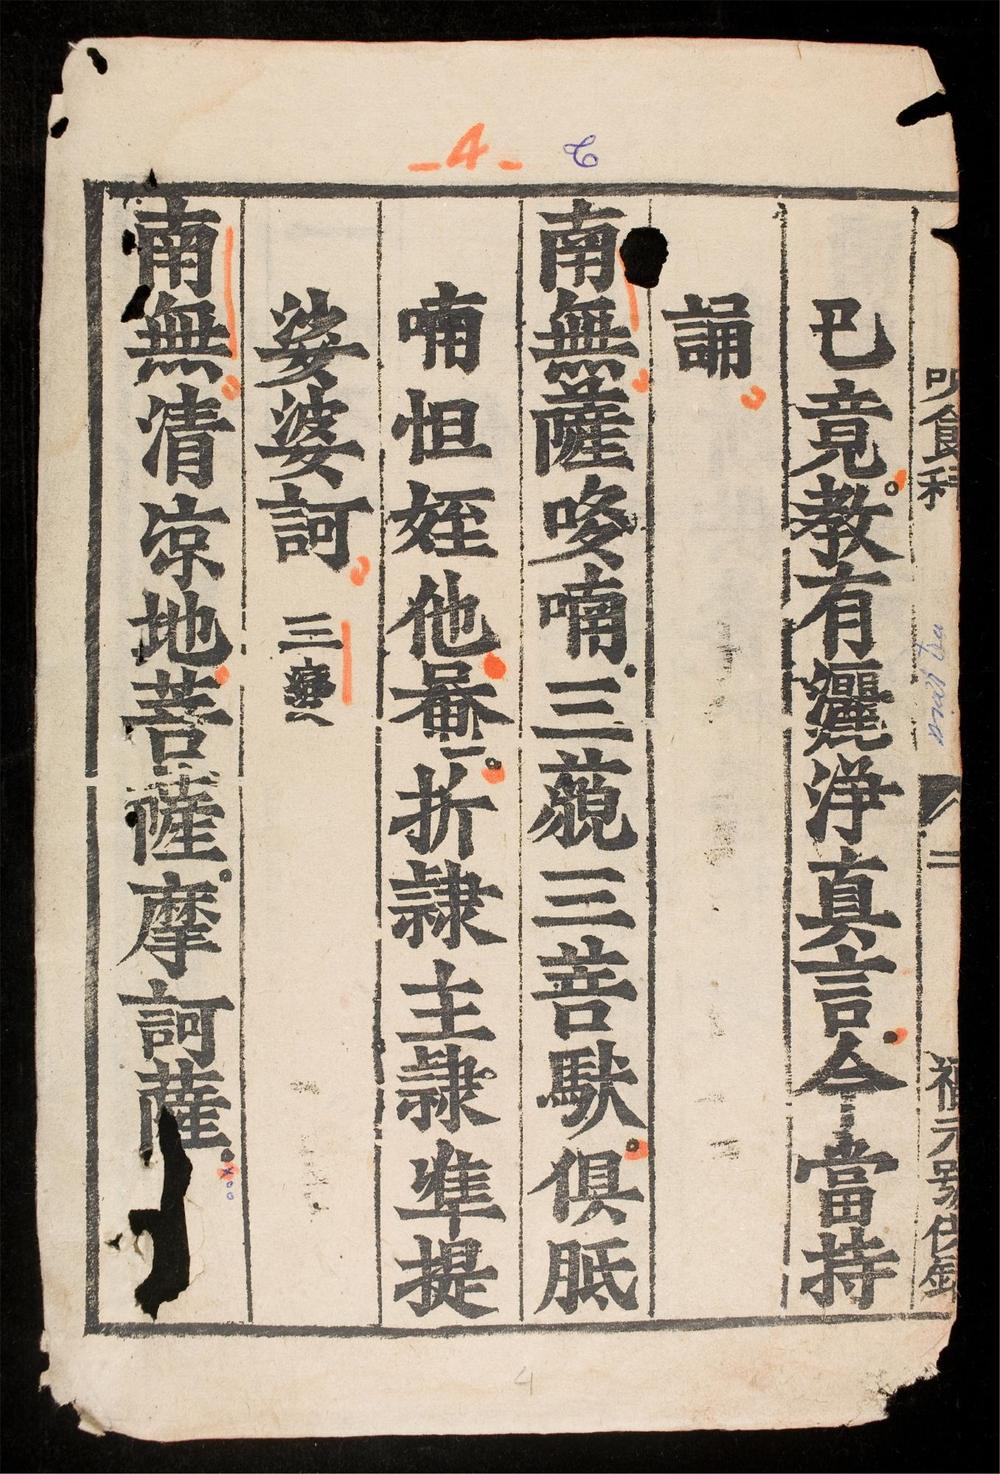 -4-
巳竟教有灑淨真言今當持
誦
南無薩哆喃三藐三菩馱俱胝
喃怛姪他唵折隷主隷準提
娑婆訶 三遍
南無清凉地菩薩摩訶薩
二
4